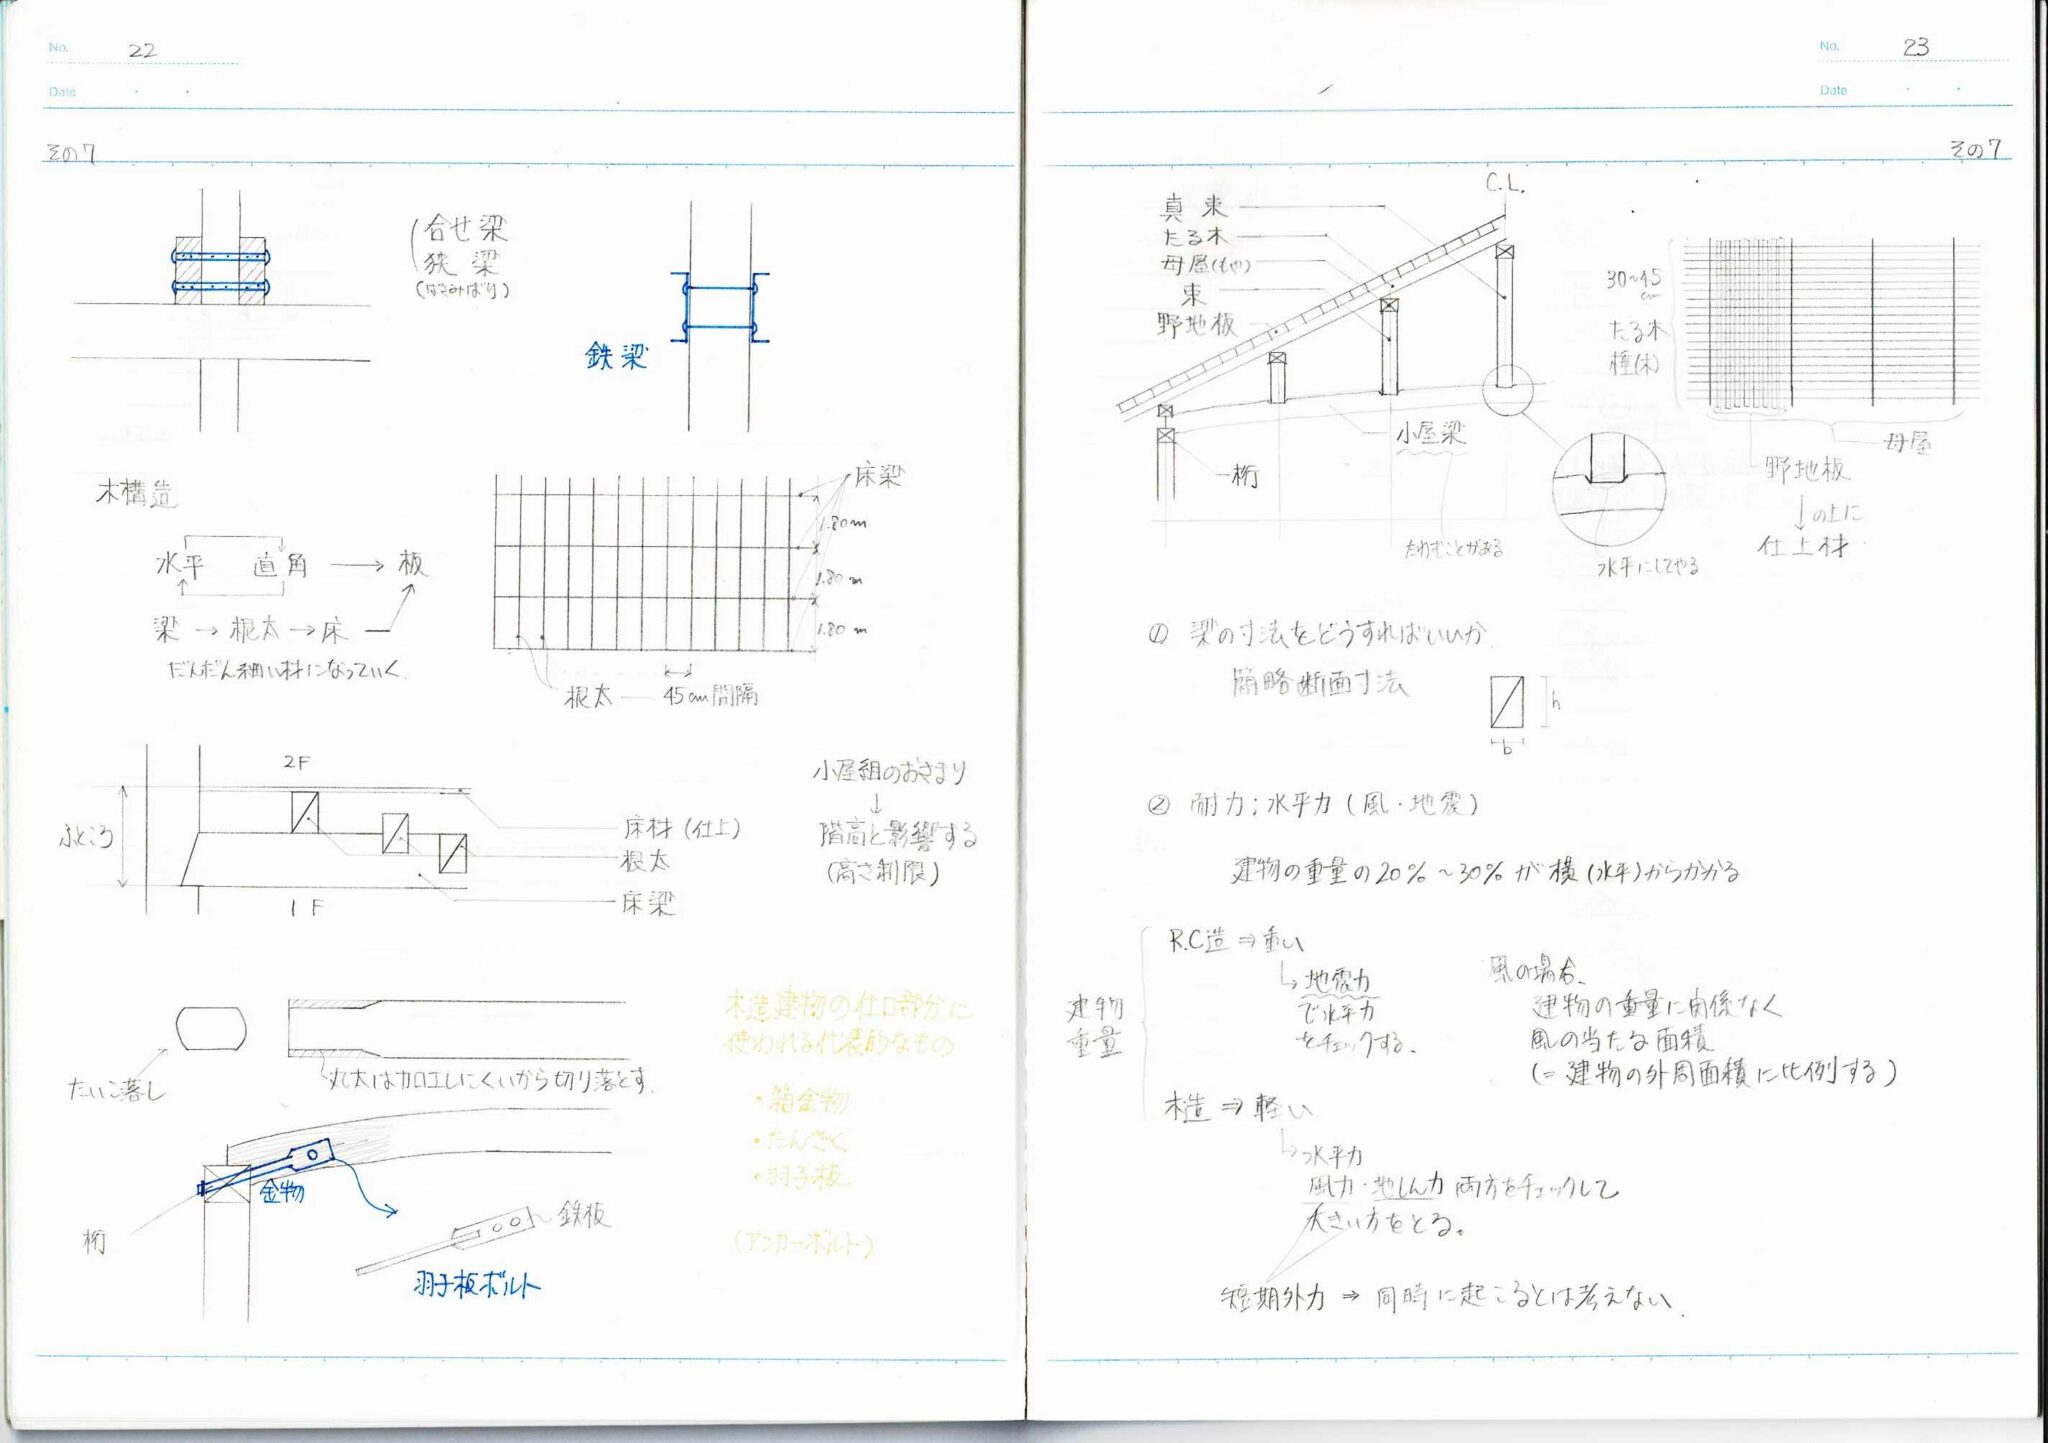 No. 22
Date
その7
合せ梁
狭梁
(はさみばり)
鉄梁
木構造
水平 直角 → 板
梁 → 根太 → 床
だんだん細い材になっていく.
床梁
1.80m
1.80m
1.80m
根太 45cm間隔
2F
ふところ
床材(仕上)
根太
床梁
1F
小屋組のおさまり
↓
階高と影響する
(高さ制限)
たいこ落し
丸太は加工しにくいから切り落とす.
金物
桁
鉄板
羽子板ボルト
木造建物の仕口部分に
使われる代表的なもの
・箱金物
・たんざく
・羽子板
(アンカーボルト)
No. 23
Date
その7
C.L.
真束
たる木
母屋(もや)
束
野地板
小屋梁
桁
たわむことがある
水平にしてやる
30~45
cm
たる木
母屋
野地板
↓の上に
仕上材
① 梁の寸法をどうすればいいか.
簡略断面寸法
h
b
② 耐力;水平力(風・地震)
建物の重量の20%~30%が横(水平)からかかる
建物
重量
R.C造 ⇒ 重い
地震力
で水平力
をチェックする.
風の場合.
建物の重量に関係なく
風の当たる面積
(=建物の外周面積に比例する)
木造 ⇒ 軽い
水平力
風力・地しん力 両方をチェックして
大きい方をとる。
短期外力 ⇒ 同時に起こるとは考えない.